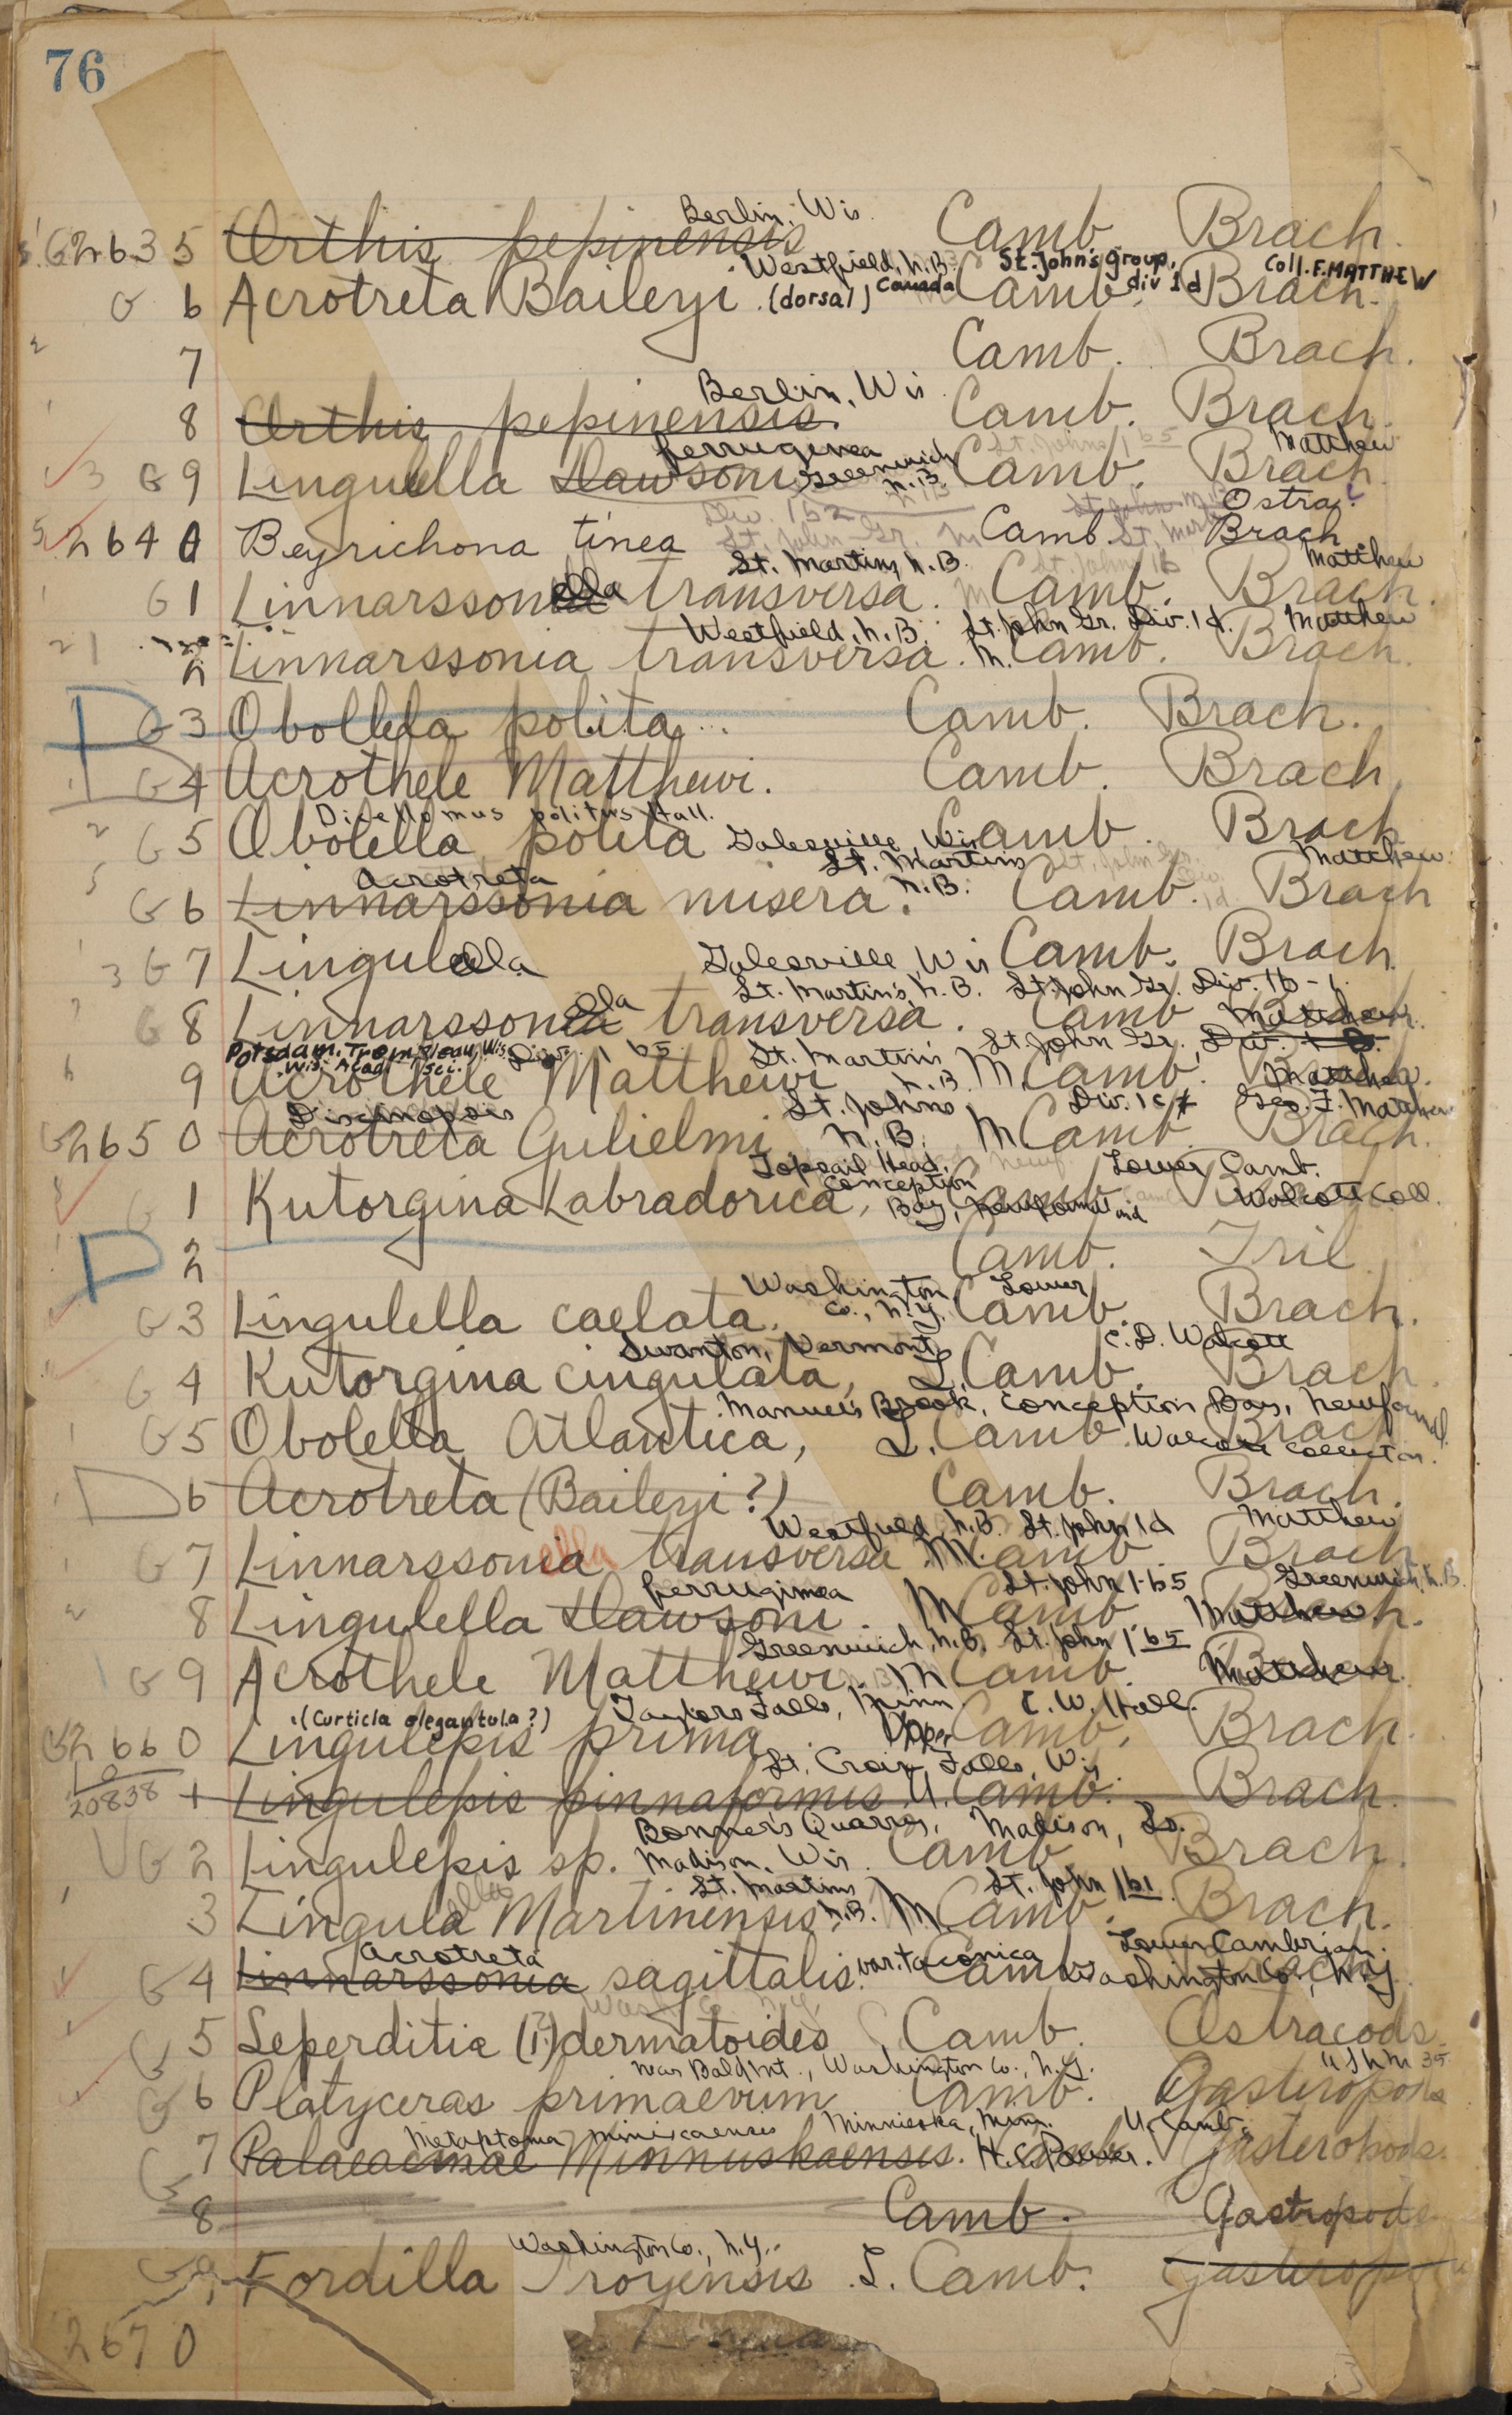 76
Berlin, Wis.
G2635 Orthis pepinensis Camb. Brach.
Westfield, N.B. Canada St. John's group, div 1d Coll. F. MATTHEW
6 Acrotreta Baileyi (dorsal) Camb. Brach.
7 Camb. Brach.
Berlin, Wis
8 Orthis pepinensis. Camb. Brach.
ferruginea Greenwich N.B. Matthew
3 G 9 Lingulella Dawsoni Camb. Brach
Ostra.
2640 Beyrichona tinea Camb. Brach
St. Martins, N.B. Matthew
G 1 Linnarssonella transversa. Camb. Brach.
Westfield, N.B. St. John Gr. Div. 1d. Matthew
2 Linnarssonia transversa. M. Camb. Brach.
G 3 Obolella polita Camb. Brach.
G 4 Acrothele Matthewi. Camb. Brach.
Dicellomus politus Hall.
G 5 Obolella polita Galesville, Wis Camb. Brach
Acrotreta St. Martins N.B. Matthew
G 6 Linnarssonia misera. Camb. Brach
3 G 7 Lingulella Galesville, Wis Camb. Brach.
St. Martins, N.B. St. John Gr. Div. 1b-1.
G 8 Linnarssonella transversa. Camb Matthew
Potsdam, Trempleau, Wis. Wis. Acad. Sci. Div. 1b5 St. Martins N.B. St. John Gr., Div.
9 Acrothele Matthewi M. Camb. Matthew
Discinopsis St. Johns N.B. Div. 1c Geo. F. Matthew
G2650 Acrotreta Gulielmi M Camb. Brach.
Topsail Head, Conception Bay, Newfoundland Lower Camb. Walcott Coll.
G 1 Kutorgina Labradorica, Camb
2 Camb. Tril
Washington Co., N.Y. Lower
G 3 Lingulella caelata. Camb. Brach.
Swanton, Vermont C. D. Walcott
G 4 Kutorgina cingulata, L. Camb. Brach.
Manuels Brook, Conception Bay, Newfound.
G 5 Obolella Atlantica, L. Camb. Brach
Walcott Collection.
6 Acrotreta (Baileyi?) Camb. Brach.
Westfield, N.B. St. John 1d Matthew
G 7 Linnarssonella transversa M. Camb. Brach
ferruginea St. John 1-b5 Greenwich, N.B.
8 Lingulella Dawsoni. M Camb Matthew
Greenwich, N.B. St. John 1 b5
G 9 Acrothele Matthewi. M Camb. Matthew
(Curticia elegantula?) Taylors Falls, Minn. C. W. Hall.
G2660 Lingulepis prima Upper Camb. Brach.
St. Croix Falls, Wis.
20838 1 Lingulepis pinnaformis U. Camb. Brach.
Bonner's Quarry, Madison,
G 2 Lingulepis sp. Madison, Wis. Camb Brach.
St. Martins N.B. St. John 1b1
3 Lingulella Martinensis, M Camb. Brach.
Acrotreta var. taconica Lower Cambrian.
G 4 Linnarssonia sagittalis. Camb Washington Co., N.Y.
G 5 Leperditia (I?) dermatoides Camb. Ostracods
near Bald Mt., Washington Co., N.Y. USNM 35
G 6 Platyceras primaevum Camb. Gasteropods
Metoptoma Minnieska, Minn. U. Camb.
G 7 Palaeacmae Minnuskaensis. Camb. Gasteropods.
8 Camb. Gastropods
Washington Co., N.Y.
G 9 Fordilla Troyensis L. Camb. Gasteropoda
2670